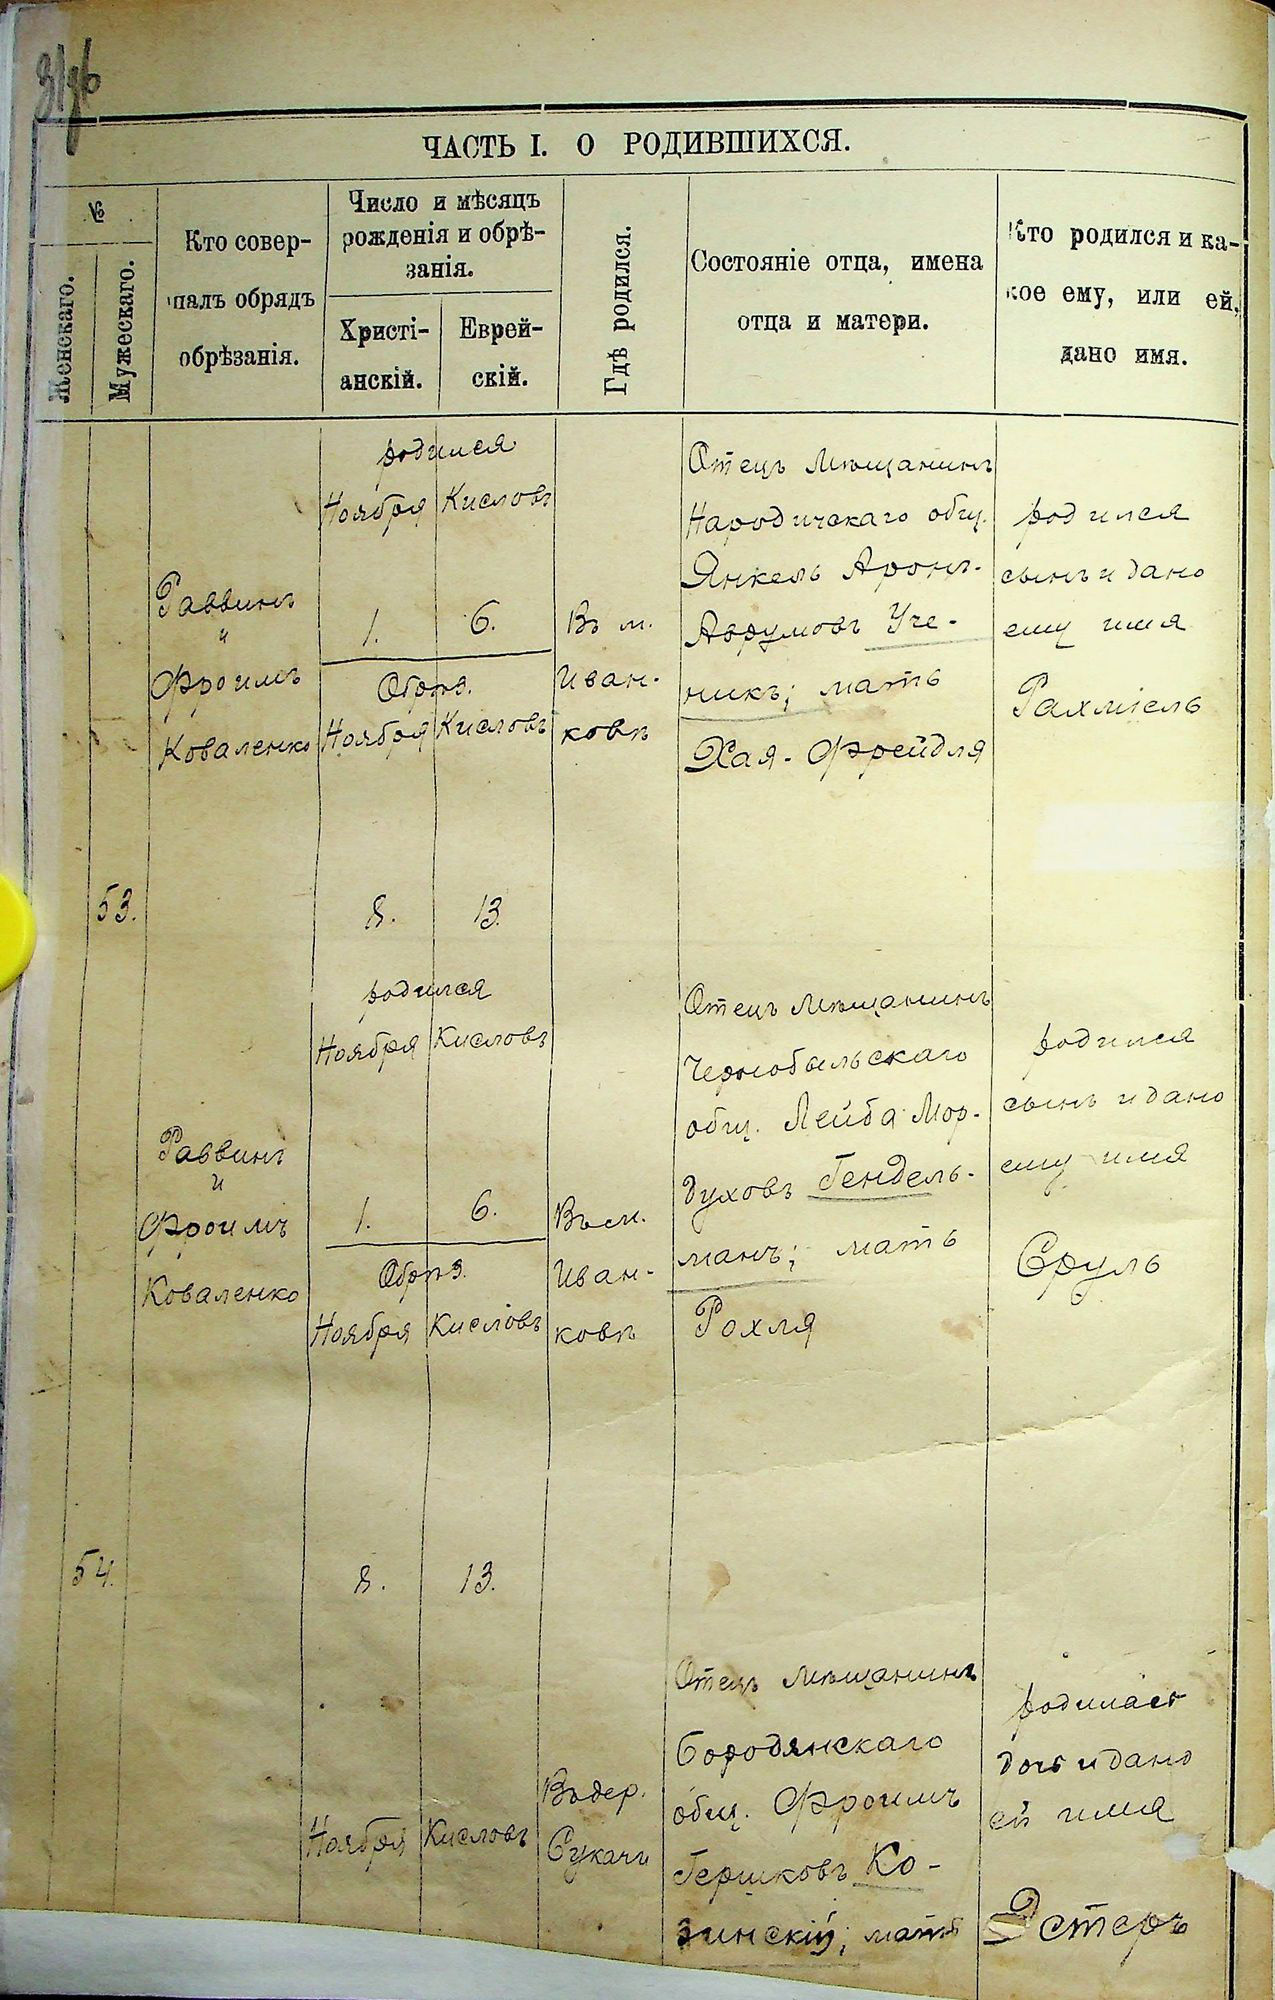 ЧАСТЬ I. О РОДИВШИХСЯ.
№
Женскаго.
Мужескаго.
Кто совер-
шалъ обрядъ
обрѣзанія.
Число и мѣсяцъ
рожденія и обрѣ-
занія.
Христі-
анскій.
Еврей-
скій.
Гдѣ родился.
Состояніе отца, имена
отца и матери.
Кто родился и ка-
кое ему, или ей,
дано имя.
53.
Раввинъ
и
Фроимъ
Коваленко
родился
Ноября Кисловъ
1. 6.
Обрѣз.
Ноября Кисловъ
8. 13.
Въ м.
Иван-
ковѣ
Отецъ Мѣщанинъ
Народичскаго общ.
Янкель Аронъ-
Аврумовъ Уче-
никъ; мать
Хая-Фрейдля
родился
сынъ и дано
ему имя
Рахміель
54.
Раввинъ
и
Фроимъ
Коваленко
родился
Ноября Кисловъ
1. 6.
Обрѣз.
Ноября Кисловъ
8. 13.
Въ м.
Иван-
ковѣ
Отецъ Мѣщанинъ
Чернобыльскаго
общ. Лейба Мор-
духовъ Гендель-
манъ; мать
Рохля
родился
сынъ и дано
ему имя
Сруль
Ноября Кисловъ
Въ дер.
Сукачи
Отецъ Мѣщанинъ
Бородянскаго
общ. Фроимъ
Гершковъ Ко-
зинскій; мать
родилась
дочь и дано
ей имя
Эстеръ